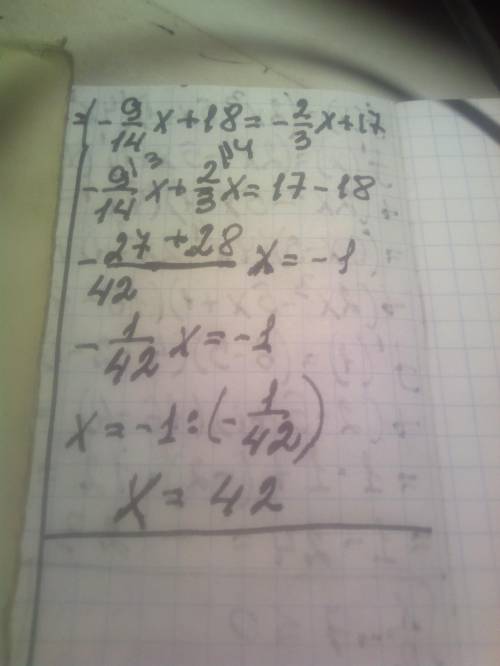 - 9/14 x + 18 = - 2/3 x + 17
- 9/14 \3 x + 2/3 \14 x = 17 - 18
- 27 + 28 / 42 x = - 1
- 1/42 x = - 1
x = - 1 : (- 1/42)
x = 42